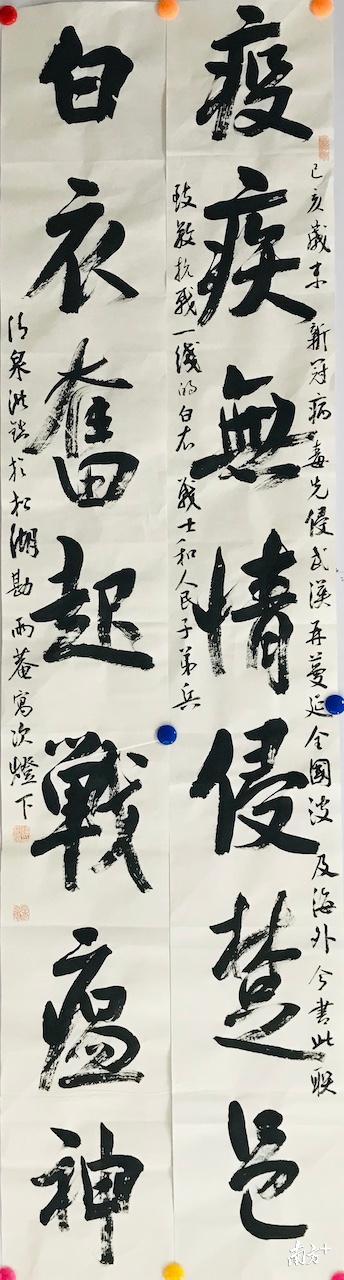 己亥歲末新冠病毒先侵武漢再蔓延全國波及海外今書此联
疫疾無情侵楚邑
致敬抗戰一綫的白衣戰士和人民子弟兵
白衣奮起戰瘟神
泉洪鋕於松湖勘雨菴寫次燈下
南方+